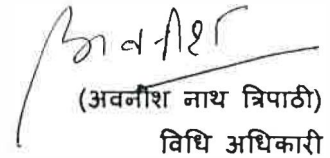 अवनीश
(अवनीश नाथ त्रिपाठी)
विधि अधिकारी